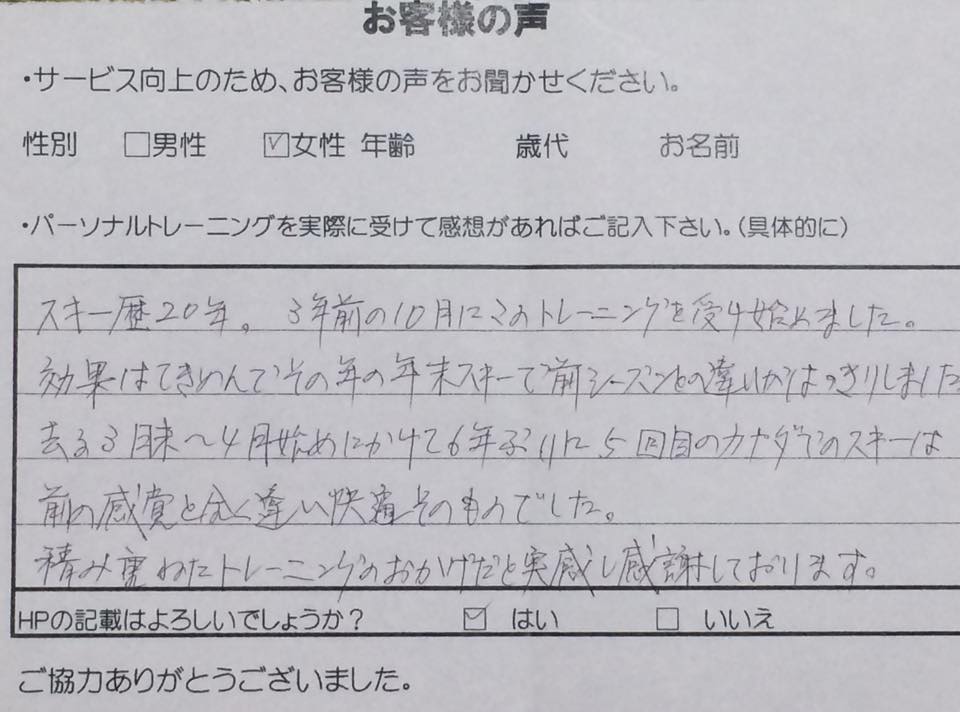 お客様の声
・サービス向上のため、お客様の声をお聞かせください。
性別 □男性 ☑女性 年齢 歳代 お名前
・パーソナルトレーニングを実際に受けて感想があればご記入下さい。(具体的に)
スキー歴20年。3年前の10月にこのトレーニングを受け始めました。
効果はてきめんでその年の年末スキーで前シーズンとの違いがはっきりしました
去る3月末～4月始めにかけて6年ぶりに5回目のカナダでのスキーは
前の感覚と全く違い快適そのものでした。
積み重ねたトレーニングのおかげだと実感し感謝しております。
HPの記載はよろしいでしょうか? ☑ はい □ いいえ
ご協力ありがとうございました。